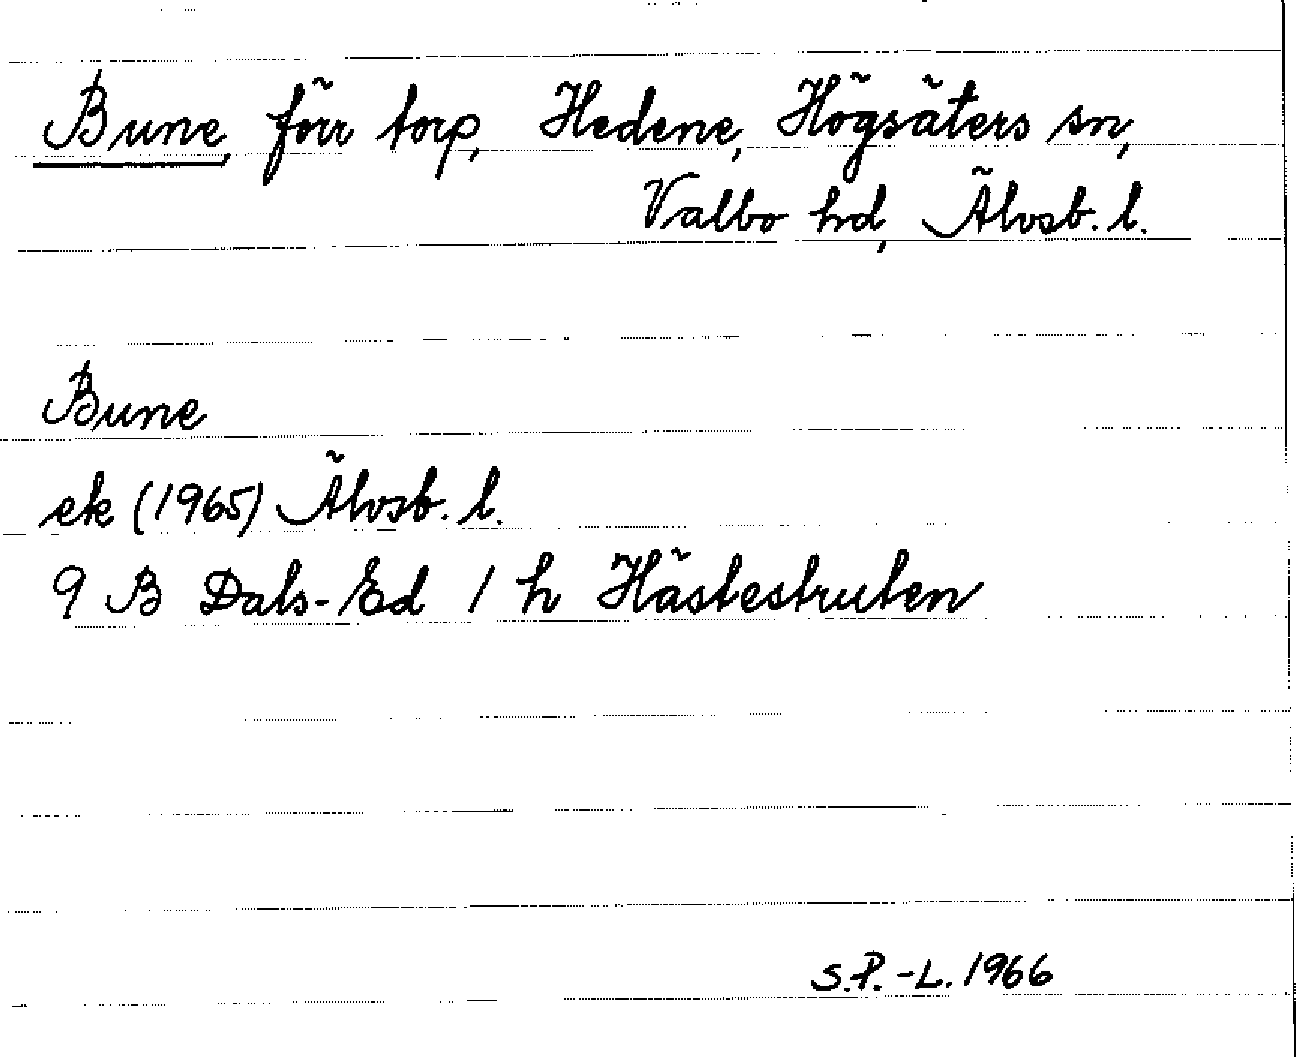 Bune, förr torp, Hedene, Högsäters sn,
Valbo hd, Älvsb. l.
Bune
ek (1965) Älvsb. l.
9 B Dals-Ed 1 h Hästestruten
S.P.-L. 1966